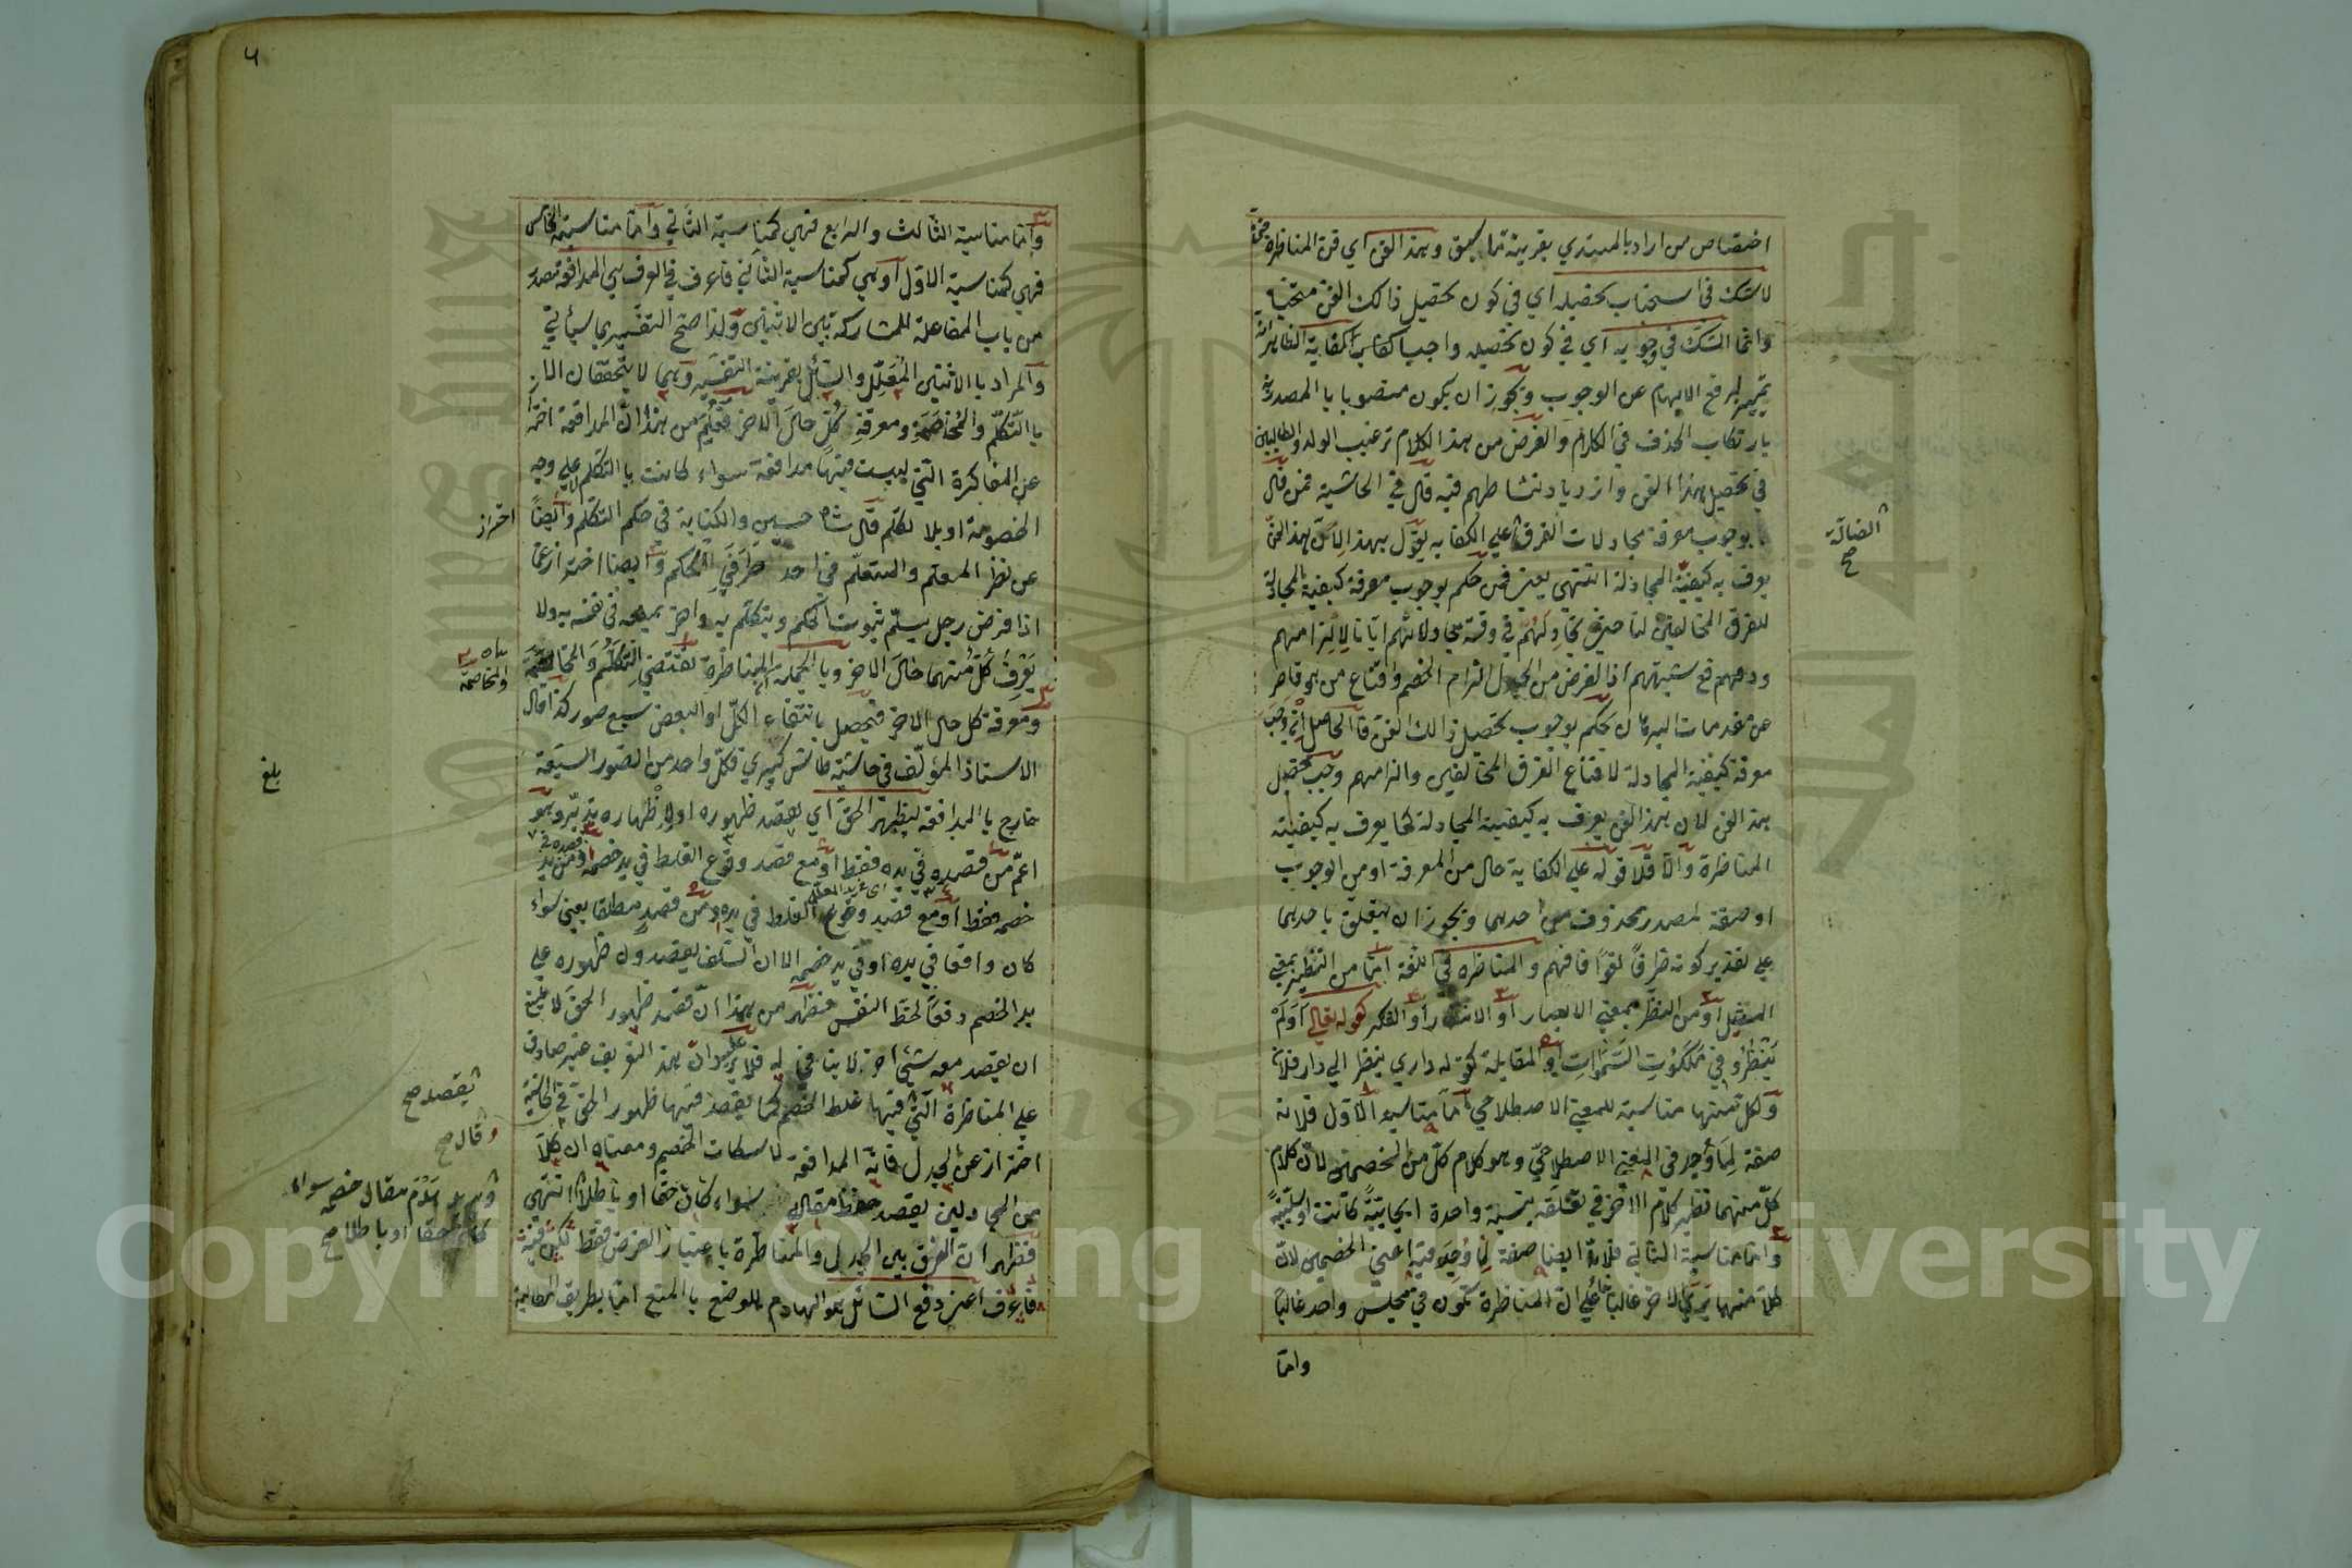 اختصاص من اراد بالمبتدي بقرينة ما سبق وهذا الفن اي فن المناظرة
لا شك في استحباب تحصيله اي في كون تحصيل ذالك الفن
وانما الشك في وجوبه اي في كون تحصيله واجبا
تمييز لرفع الابهام عن الوجوب ويجوز ان يكون منصوبا با المصدرية
بارتكاب الحذف في الكلام والغرض من هذا الكلام ترغيب الولد والطالبين
في تحصيل هذا الفن وازدياد نشاطهم فيه قال في الحاشية فمن قال
بوجوب معرفة مجادلات الفرق على الكفايه يقول بهذا لان بهذا الفن
الضالة صح
يعرف به كيفية المجادلة انتهى يعني فمن حكم بوجوب معرفة كيفية المجادلة
للفرق المخالفين
ودفعهم شبهتهم اذ الغرض من الجدل الزام الخصم واقناع من هو قاصر
عن مقدمات البرهان يحكم بوجوب تحصيل ذالك الفن فا الحاصل وجب
معرفة كيفية المجادلة لاقناع الفرق المخالفين والزامهم وجب تحصيل
هذا الفن لان بهذا الفن يعرف به كيفية المجادلة كما يعرف به كيفية
المناظرة والا فلا قوله على الكفاية حال من المعرفة او من الوجوب
او صفة لمصدر محذوف من احدهما ويجوز ان يتعلق باحدهما
على تقدير كونه ظرفا لغوا فافهم والمناظره في اللغة اما من النظير بمعني
المثيل او من النظر بمعني الابصار او الانتظار او الفكر كقوله تعالى اولم
ينظروا في ملكوت السموات او المقابلة كقوله داري ينظر الي دار فلان
ولكل منها مناسبة للمعني الاصطلاحي اما مناسبة الاول فلانه
صفة لما وجد في المعني الاصطلاحي وهو كلام كل من الخصمين لان كلام
كل منهما نظير كلام الاخر في تعلقه بنسبة واحدة ايجابية كانت او سلبية
واما مناسبة الثاني فلانه ايضا صفة لما وجد فيه اعني الخصمين لان
كلا منهما يري الاخر غالبا علي ان المناظرة تكون في مجلس واحد غالبا
واما
واما مناسبة الثالث والرابع فهي كمناسبة الثاني واما مناسبة الخامس
فهي كمناسبة الاول او هي كمناسبة الثاني فاعرف في العرف هي المدافعة مصدر
من باب المفاعلة للمشاركة بين الاثنين ولذا صح التفسير بما سيأتي
والمراد با الاثنين المعلل والسائل بقرينة التفسير وهما لا يتحققان الا
با التكلم والمخاصمة ومعرفة كل حال الاخر فعلم من هذا ان المدافعة احترازا
عن المذاكرة التي ليست فيها مدافعة سواء كانت با التكلم لا علي وجه
الخصومة او بلا تكلم قال شاه حسين والكتابة في حكم التكلم وايضا
احتراز
عن نظر المعلم والمتعلم في احد طرفي الحكم وايضا احتراز عما
اذا فرض رجل يسلم ثبوت الحكم ويتكلم به واخر يمنعه في نفسه ولا
يعرف كل منهما حال الاخر وبا الجملة المناظرة تقتضي التكلم
والمخاصمة
ومعرفة كل حال الاخر فتحصل بانتفاء الكل او البعض سبع صور كذا قال
الاستاذ المؤلف في حاشية طاش كبري فكل واحد من الصور السبعة
بلغ
خارج با المدافعة ليظهر الحق اي يقصد ظهوره او لاظهاره
اعم من قصده في يده فقط او مع قصد وقوع الغلط في يد خصمه
خصمه فقط او مع قصد وقوع الغلط في يده ومن قصد مطلقا يعني سواء
كان واقعا في يده او في يد خصمه الا ان السلف يقصدون ظهوره علي
يد الخصم دفعا لحظ النفس فظهر من هذا ان قصد ظهور الحق
ان يقصد معه شيئ اخر لا ينافي له فلا يرد ان هذا التعريف غير صادق
علي المناظرة التي فيها غلط الخصم كما يقصد فيها ظهور الحق
يقصد صح
وقال صح
احتراز عن الجدل فانه المدافعة لاسكات الخصم ومعناه ان كلا
من المجادلين يقصد حفظ مقاله سواء كان حقا او باطلا انتهى
هدم مقال خصمه سواء
كان حقا او باطلا صح
فظهر ان الفرق بين الجدل والمناظرة باعتبار الغرض فقط
فاعرف اعني دفع السائل هو الهادم للوضع با المنع اما بطريق المطالبة
Copyright © King Saud University